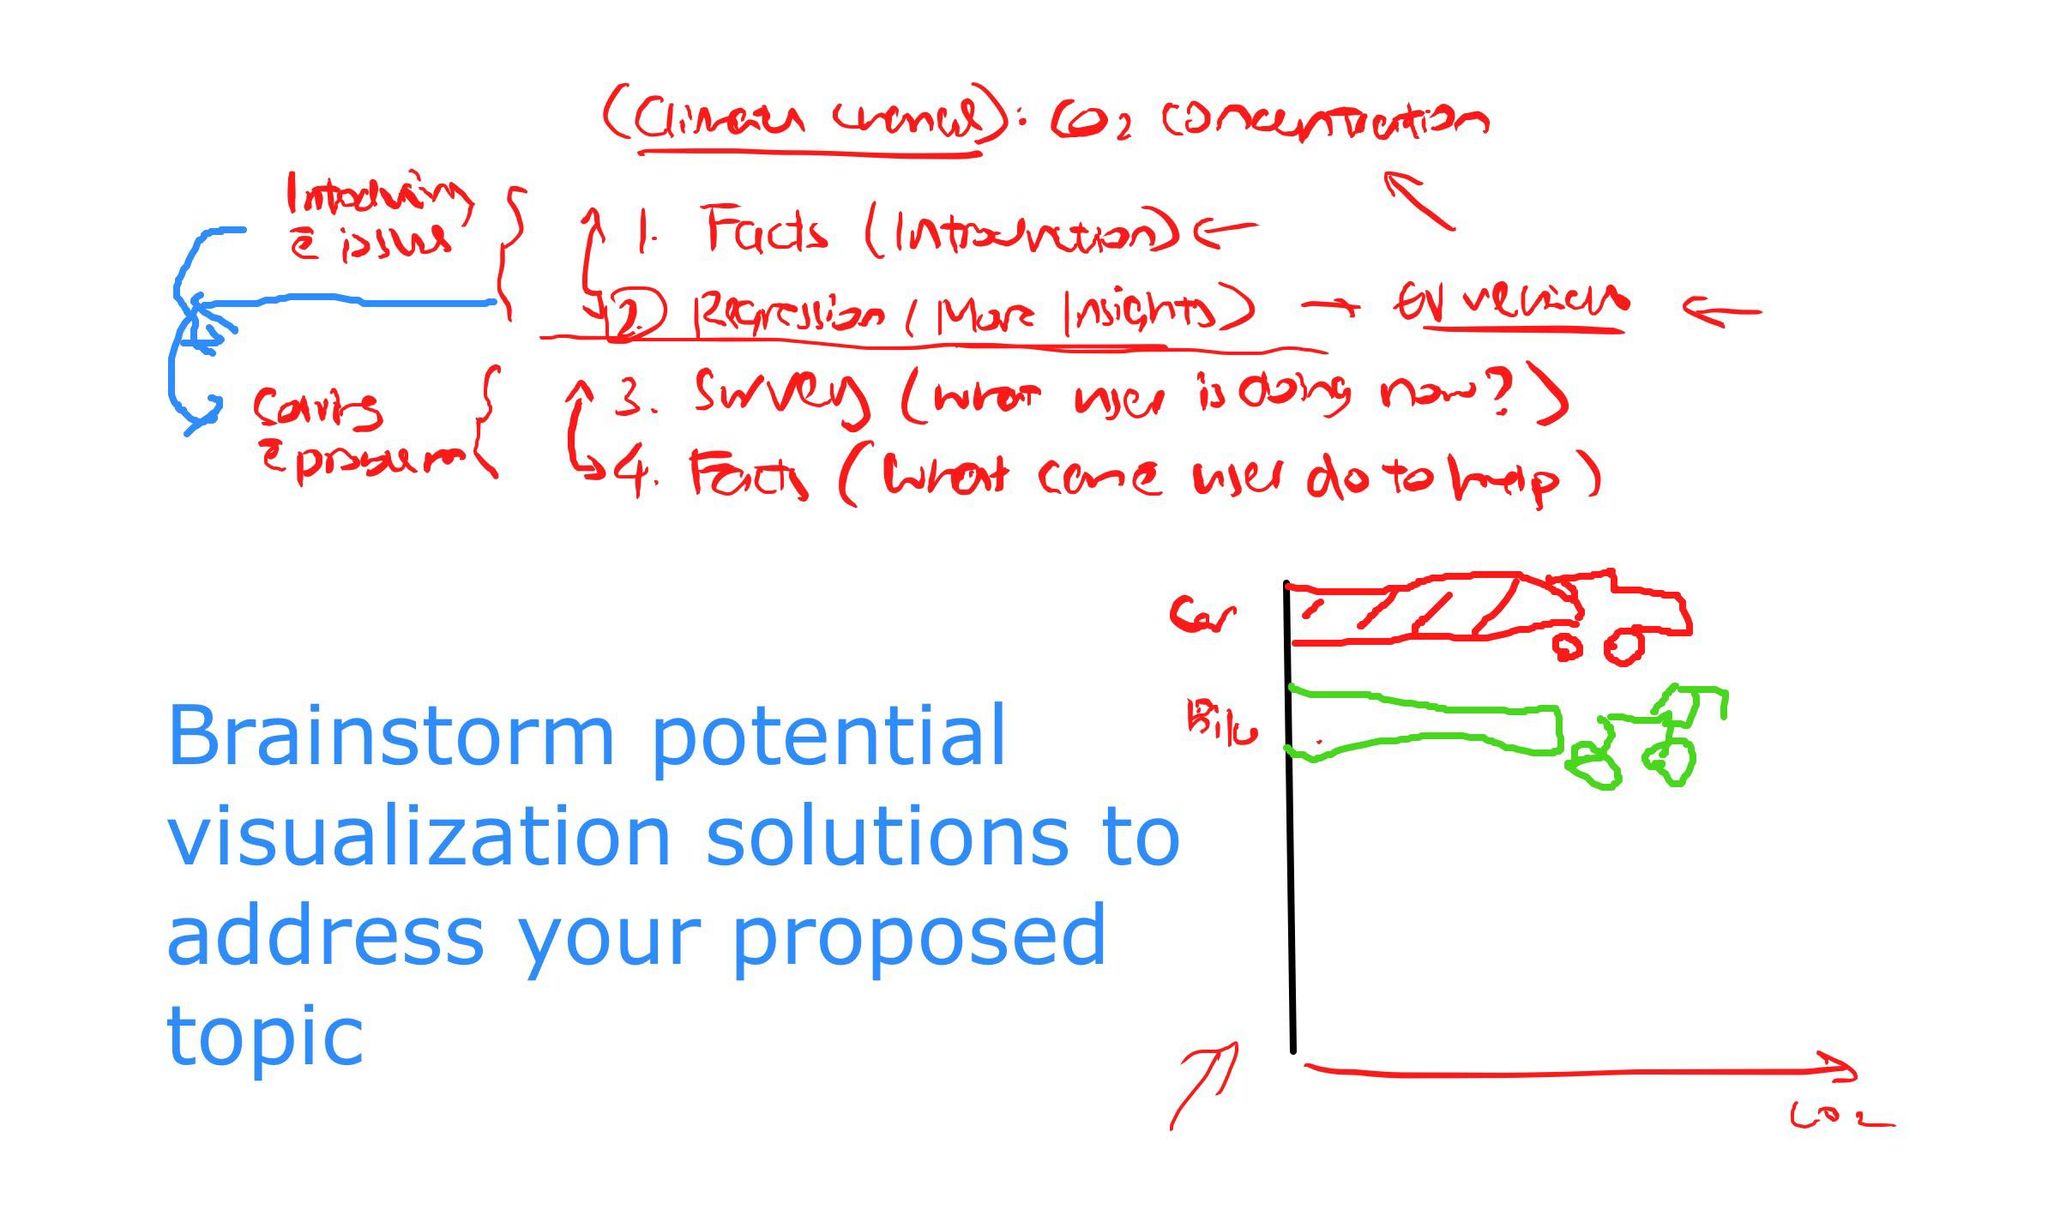 (Climate change): CO₂ concentration
Introducing
ē issue
1. Facts (Introduction)
2. Regression (More Insights) → EV vehicles
3. Survey (what user is doing now?)
Solving
ē problem
4. Facts (what can ē user do to help)
Car
Bike
Brainstorm potential
visualization solutions to
address your proposed
topic
CO₂